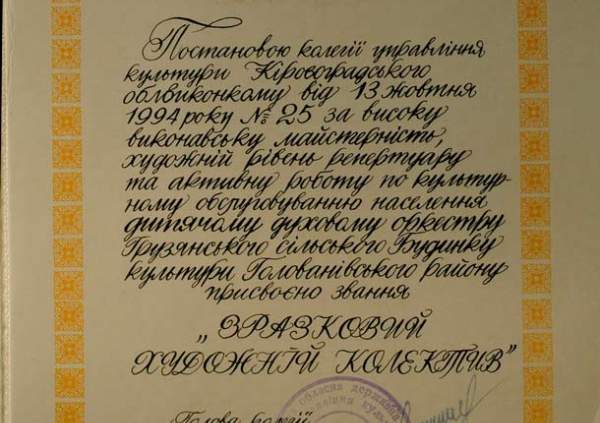 Постановою колегії управління
культури Кіровоградського
облвиконкому від 13 жовтня
1994 року № 25 за високу
виконавську майстерність,
художній рівень репертуару
та активну роботу по культур-
ному обслуговуванню населення
дитячому духовому оркестру
Грузянського сільського Будинку
культури Голованівського району
присвоєно звання
„ЗРАЗКОВИЙ
ХУДОЖНІЙ КОЛЕКТИВ"
обласна державна
Голова колегії